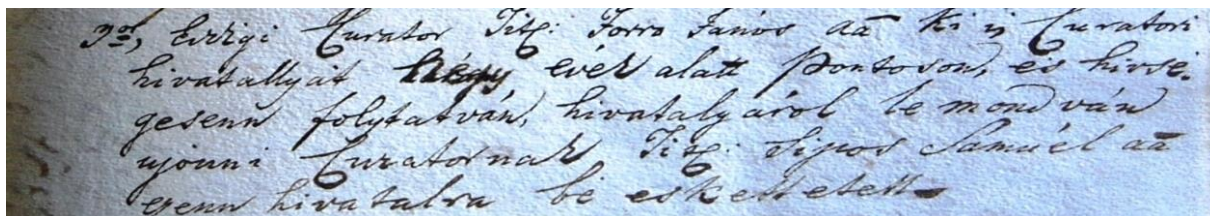 3or, Eddigi Curator Titz: Forro János aā ki is Curatori
hivatallyát négy évek alatt Pontoson, és hivse-
gesenn folytatván, hivatalyárol le mondván
ujonni Curatornak Titz: Sipos Samúel aā
genn hivatalra bé eskettetett